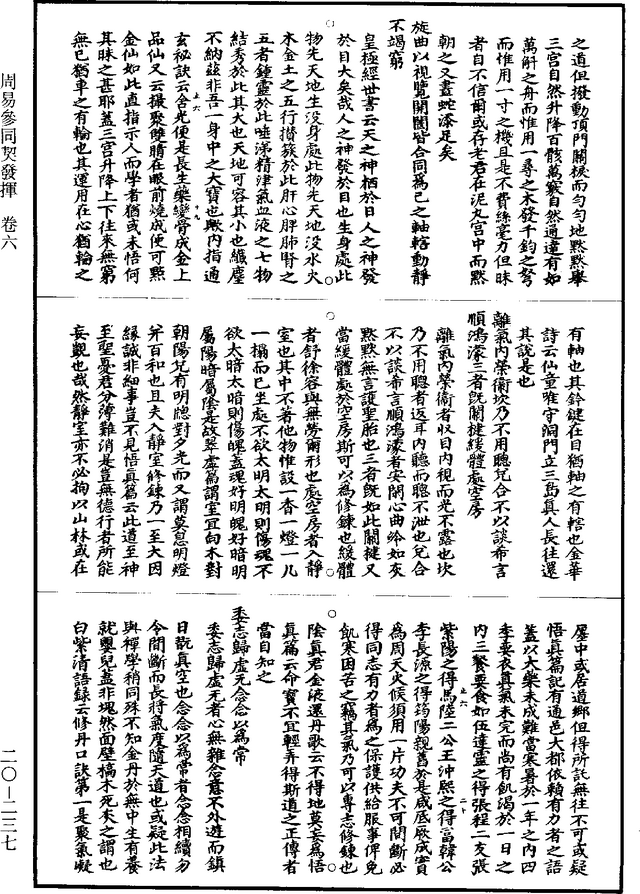 周易參同契發揮　卷六
二〇—二三七
之道但撥動頂門關棙而勻勻地默默舉
三宮自然升降百骸萬竅自然通達有如
萬斛之舟而惟用一尋之木發千鈞之弩
而惟用一寸之機且是不費絲毫力但昧
者自不信爾或存老君在泥丸宮中而默
朝之又畫蛇添足矣
旋曲以視覽開闔皆合同為己之軸轄動靜
不竭窮
皇極經世書云天之神栖於日人之神發
於目大矣哉人之神發於目也生身處此
物先天地生没身處此物先天地没水火
木金土之五行攢簇於此肝心脾肺腎之
五者鍾靈於此唾涕精津氣血液之七物
結秀於此其大也天地可容其小也纖塵
不納茲非吾一身中之大寶也歟内指通
玄秘訣云含光便是長生藥變骨成金上
品仙又云撮聚雙睛在眼前燒成便可點
金仙如此直指示人而學者猶或未悟何
其昧之甚耶蓋三宮升降上下往來無窮
無已猶車之有輪也其運用在心猶輪之
有軸也其鈐鍵在目猶軸之有轄也金華
詩云仙童唯守洞門立三島真人長往還
其說是也
離氣内榮衛坎乃不用聰兌合不以談希言
順鴻濛三者既關揵緩體處空房
離氣内榮衛者收目内視而光不露也坎
乃不用聰者返耳内聽而聰不泄也兌合
不以談希言順鴻濛者安閑心曲冷如灰
默默無言護聖胎也三者既如此關揵又
當緩體處於空房斯可以為修鍊也緩體
者舒徐容與無勞爾形也處空房者入靜
室也其中不著他物惟設一香一燈一几
一榻而已坐處不欲太明太明則傷魂不
欲太暗太暗則傷魄蓋魂好明魄好暗明
屬陽暗屬陰是故翠虛篇謂室宜向木對
朝陽兌有明牕對夕光而又謂莫息明燈
并百和也且夫入靜室修鍊乃一至大因
緣誠非細事豈不見悟真篇云此道至神
至聖憂君分薄難消是豈無德行者所能
妄觀也哉然靜室亦不必拘以山林或在
廛中或居道鄉但得所託無往不可或疑
悟真篇記有通邑大都依賴有力者之語
蓋以大藥未成難當寒暑於一年之内四
季要衣真氣未完而尚有飢渴於一日之
内三餐要食如伍達靈之得張程二支張
紫陽之得馬陸二公王沖熙之得富韓公
李長源之得筠陽親舊於是咸底厥成實
為周天火候須用一片功夫不可間斷必
得同志有力者為之保護供給服事俾免
飢寒困苦之竊其氣乃可以專志修鍊也
陰真君金液還丹歌云不得地莫妄為悟
真篇云命寶不宜輕弄得斯道之正傳者
當自知之
委志歸虛無念念以為常
委志歸虛無者心無雜念意不外遊而鎮
日翫真空也念念以為常者念念相續勿
令間斷而長將氣度隨天道也或疑此法
與禪學稍同殊不知金丹於無中生有養
就嬰兒蓋非塊然面壁槁木死灰之謂也
白紫清語録云修丹口訣第一是聚氣凝